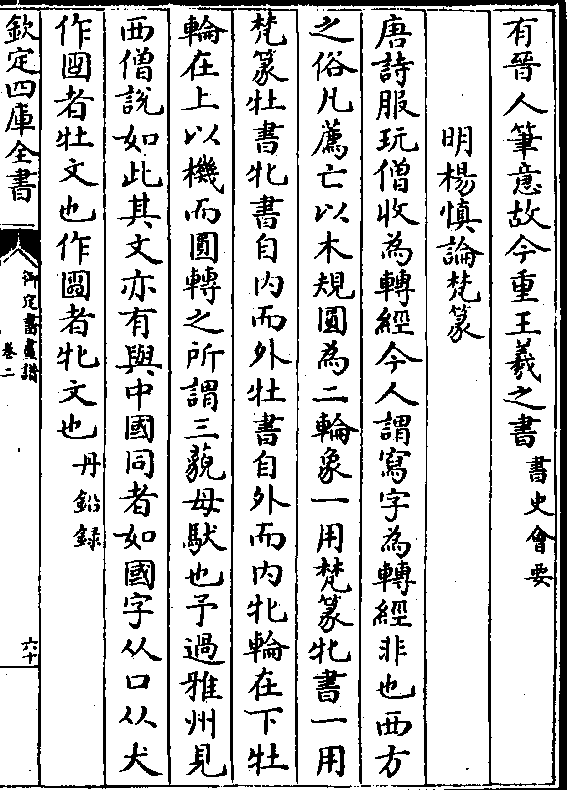 有晉人筆意故今重王羲之書書史會要
明楊慎論梵篆
唐詩服玩僧收為轉經今人謂寫字為轉經非也西方
之俗凡薦亡以木規圓為二輪象一用梵篆牝書一用
梵篆牡書牝書自内而外牡書自外而内牝輪在下牡
輪在上以機而圓轉之所謂三藐母馱也予過雅州見
西僧說如此其文亦有與中國同者如國字从口从犬
作者牡文也作者牝文也丹鉛録
欽定四庫全書
御定書畫譜
卷二
六十